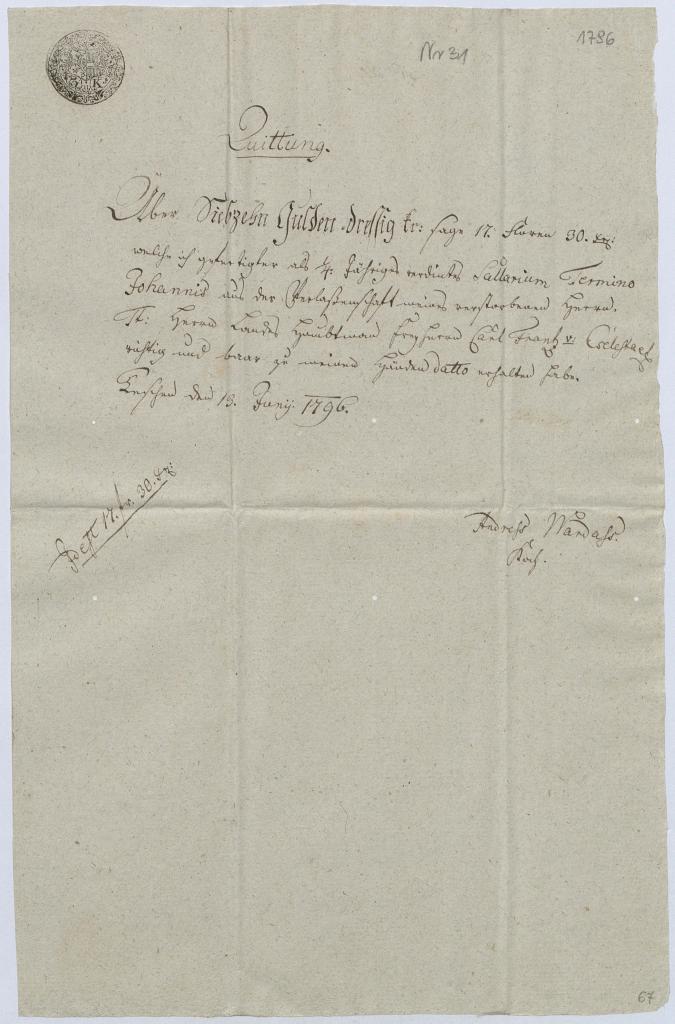 Nr 31
1796
3 K
Quittung.
Über Siebzehn Gulden dreissig kr: sage 17. Floren 30. xr:
welche ich gefertigter als 1/4 Jähriges verdintes Sallarium Termino
Johannis aus der Verlaßenschaft meines verstorbenen Herrn,
Tit: Herrn Landes Haubtman Freyherrn Carl Frantz v. Cselesta
richtig und baar zu meinen Händen datto erhalten habe.
Teschen den 13. Junij. 1796.
Id est 17. fr. 30. xr:
Andreas
Koch.
67